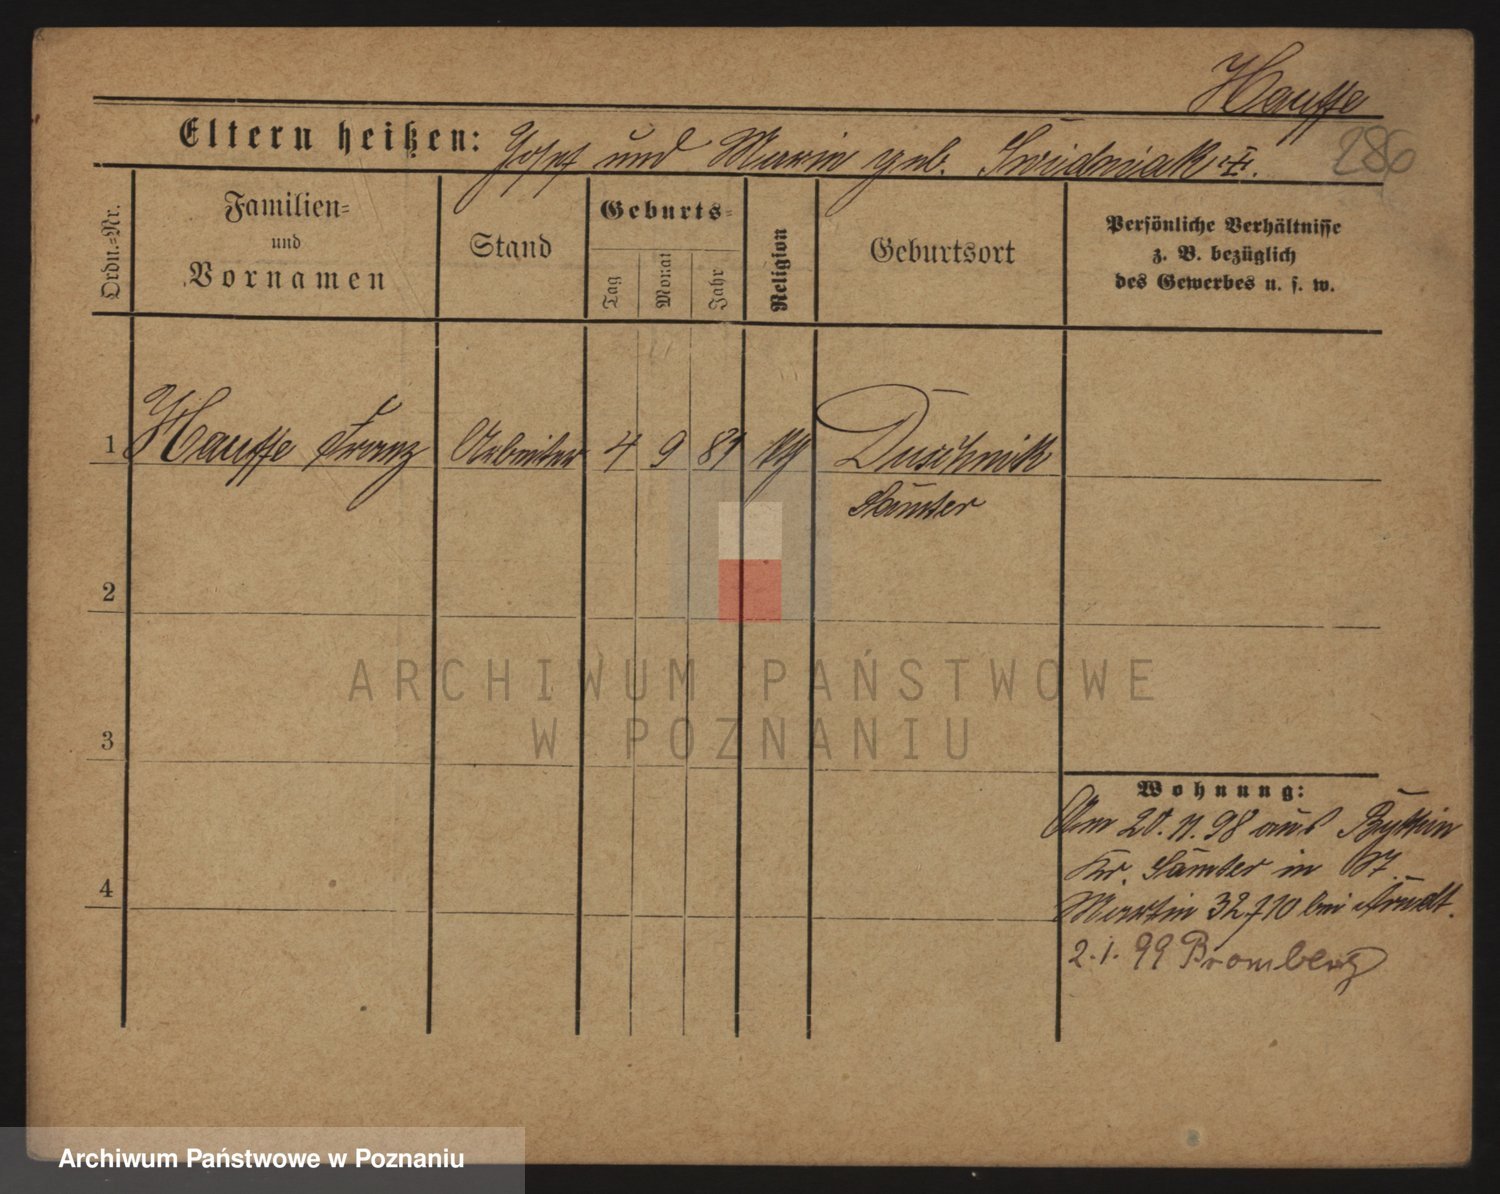 Hauffe
286
Eltern heißen: Josef und Marie geb. Swidniak
Ordn.=Nr.
Familien=
und
Vornamen
Stand
Geburts=
Tag
Monat
Jahr
Religion
Geburtsort
Persönliche Verhältnisse
z. B. bezüglich
des Gewerbes u. s. w.
1 Hauffe Franz Arbeiter 4 9 81 Duschnik
Samter
2
3
4
Wohnung:
Am 20.11.98 aus Bythin
Kr. Samter in
Martin 32 bei Arndt.
2.1.99 Bromberg
ARCHIWUM PAŃSTWOWE
W POZNANIU
Archiwum Państwowe w Poznaniu